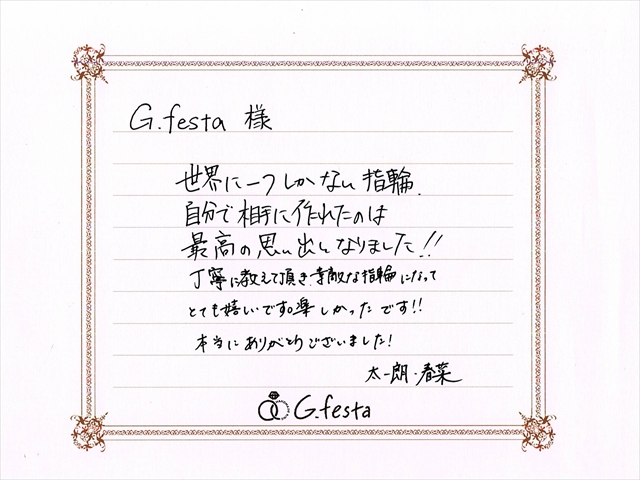 G.festa 様
世界に一つしかない指輪
自分で相手に作れたのは
最高の思い出しなりました!!
丁寧に教えて頂き、素敵な指輪になって
とても嬉しいです。楽しかったです!!
本当にありがとうございました!
太一朗・春菜
G.festa